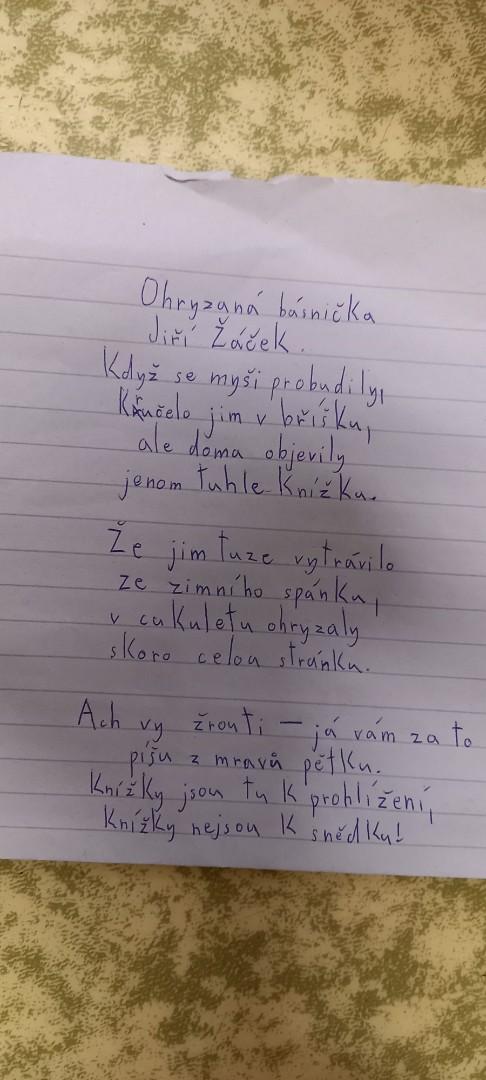 Ohryzaná básnička
Jiří Žáček.
Když se myši probudily,
Kručelo jim v bříšku,
ale doma objevily
jenom tuhle Knížku.
Že jim tuze vytrávilo
ze zimního spánku,
v cukuletu ohryzaly
skoro celou stránku.
Ach vy žrouti – já vám za to
píšu z mravů pětku.
Knížky jsou tu k prohlížení,
Knížky nejsou k snědku!